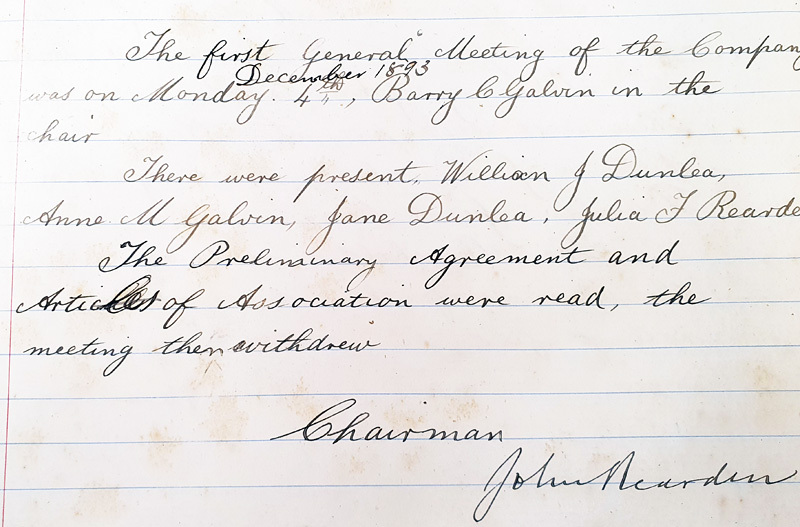 The first General Meeting of the Company
December 1893
was on Monday. 4th, Barry C Galvin in the
chair
There were present, William J Dunlea,
Anne M Galvin, Jane Dunlea, Julia F Rearde
The Preliminary Agreement and
Articles of Association were read, the
meeting then withdrew
Chairman
John Rearden